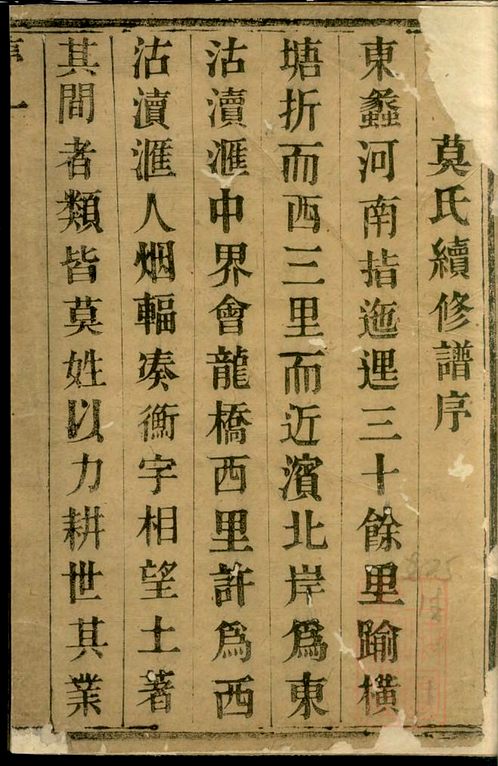 莫氏續修譜序
東蠡河南指迤逕三十餘里踰橫
塘折而西三里而近濱北岸爲東
沽瀆滙中界會龍橋西里許爲西
沽瀆滙人烟輻凑衡宇相望土著
其間者類皆莫姓以力耕世其業